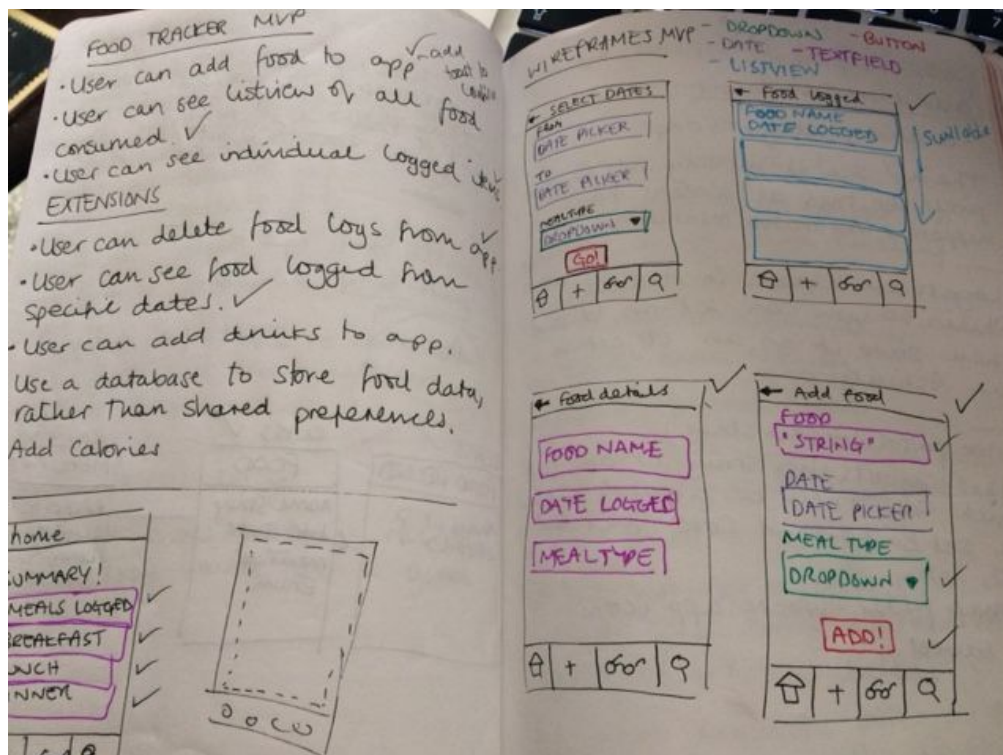 FOOD TRACKER MVP
• User can add food to app - add
toast to
• User can see listview of all food
consumed.
• User can see individual logged
EXTENSIONS
• User can delete food logs from app
• User can see food logged from
specific dates.
• User can add drinks to app.
Use a database to store food data,
rather than shared preferences.
Add Calories
home
SUMMARY!
MEALS LOGGED
BREAKFAST
LUNCH
DINNER
WIREFRAMES MVP
- DROPDOWN - BUTTON
- DATE - TEXTFIELD
- LISTVIEW
SELECT DATES
FROM
DATE PICKER
TO
DATE PICKER
MEALTYPE
DROPDOWN
GO!
+
Food logged
FOOD NAME
DATE LOGGED
+
Food details
FOOD NAME
DATE LOGGED
MEALTYPE
+
Add food
FOOD
"STRING"
DATE
DATE PICKER
MEAL TYPE
DROPDOWN
ADD!
+